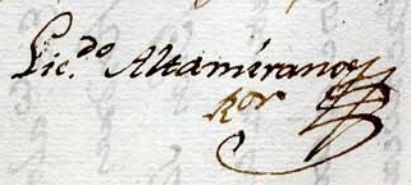 Lic.do Altamirano
Ror